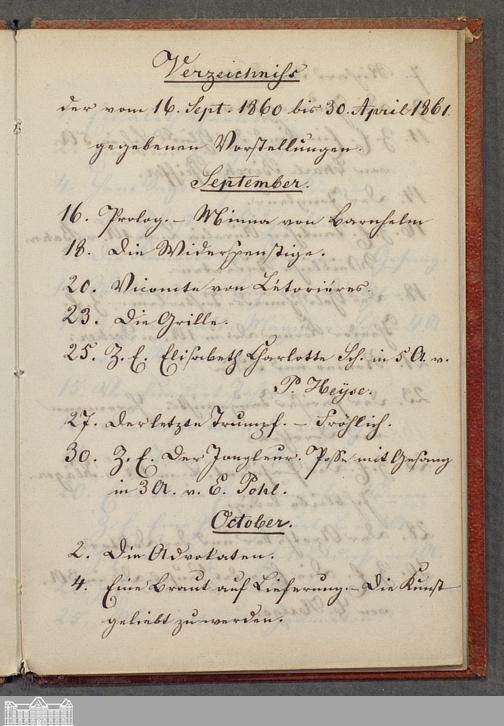 Verzeichniss
der vom 16. Sept. 1860 bis 30. April 1861.
gegebenen Vorstellungen.
September.
16. Prolog. – Minna von Barnhelm
18. Die Widerspenstige.
20. Vicomte von Létorières.
23. Die Grille.
25. Z. E. Elisabeth Charlotte Sch. in 5 A. v.
P. Heyse.
27. Der letzte Trumpf. – Fröhlich.
30. Z. E. Der Jongleur. Posse mit Gesang
in 3 A. v. E. Pohl.
October.
2. Die Advokaten.
4. Eine Braut auf Lieferung. – Die Kunst
geliebt zu werden.